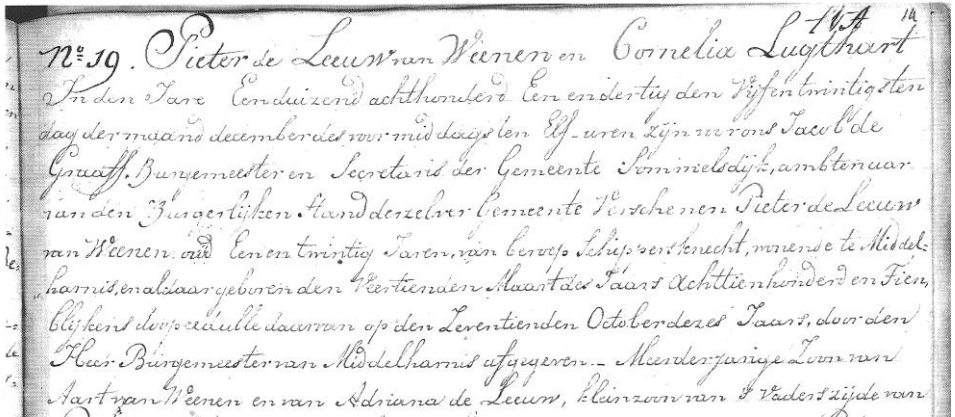 14
No 19. Pieter de Leeuw van Weenen en Cornelia Lugthart
In den Jare Eenduizend achthonderd Een en dertig den Vijfentwintigsten
dag der maand december des voormiddags ten Elf uren zijn voor ons Jacob de
Graaff, Burgemeester en Secretaris der Gemeente Sommelsdijk, ambtenaar
van den Burgerlijken Stand derzelver Gemeente Verschenen Pieter de Leeuw
van Weenen oud Een en twintig Jaren, van beroep Schippersknecht, wonende te Middel=
harnis, en aldaar geboren den Veertienden Maart des Jaars Achttienhonderd en Tien,
blijkens doop daarvan op den Zeventienden October dezes Jaars, door den
Heer Burgemeester van Middelharnis afgegeven - Meerderjarige Zoon van
Aart van Weenen en van Adriana de Leeuw, kleinzoon van 's Vaders zijde van